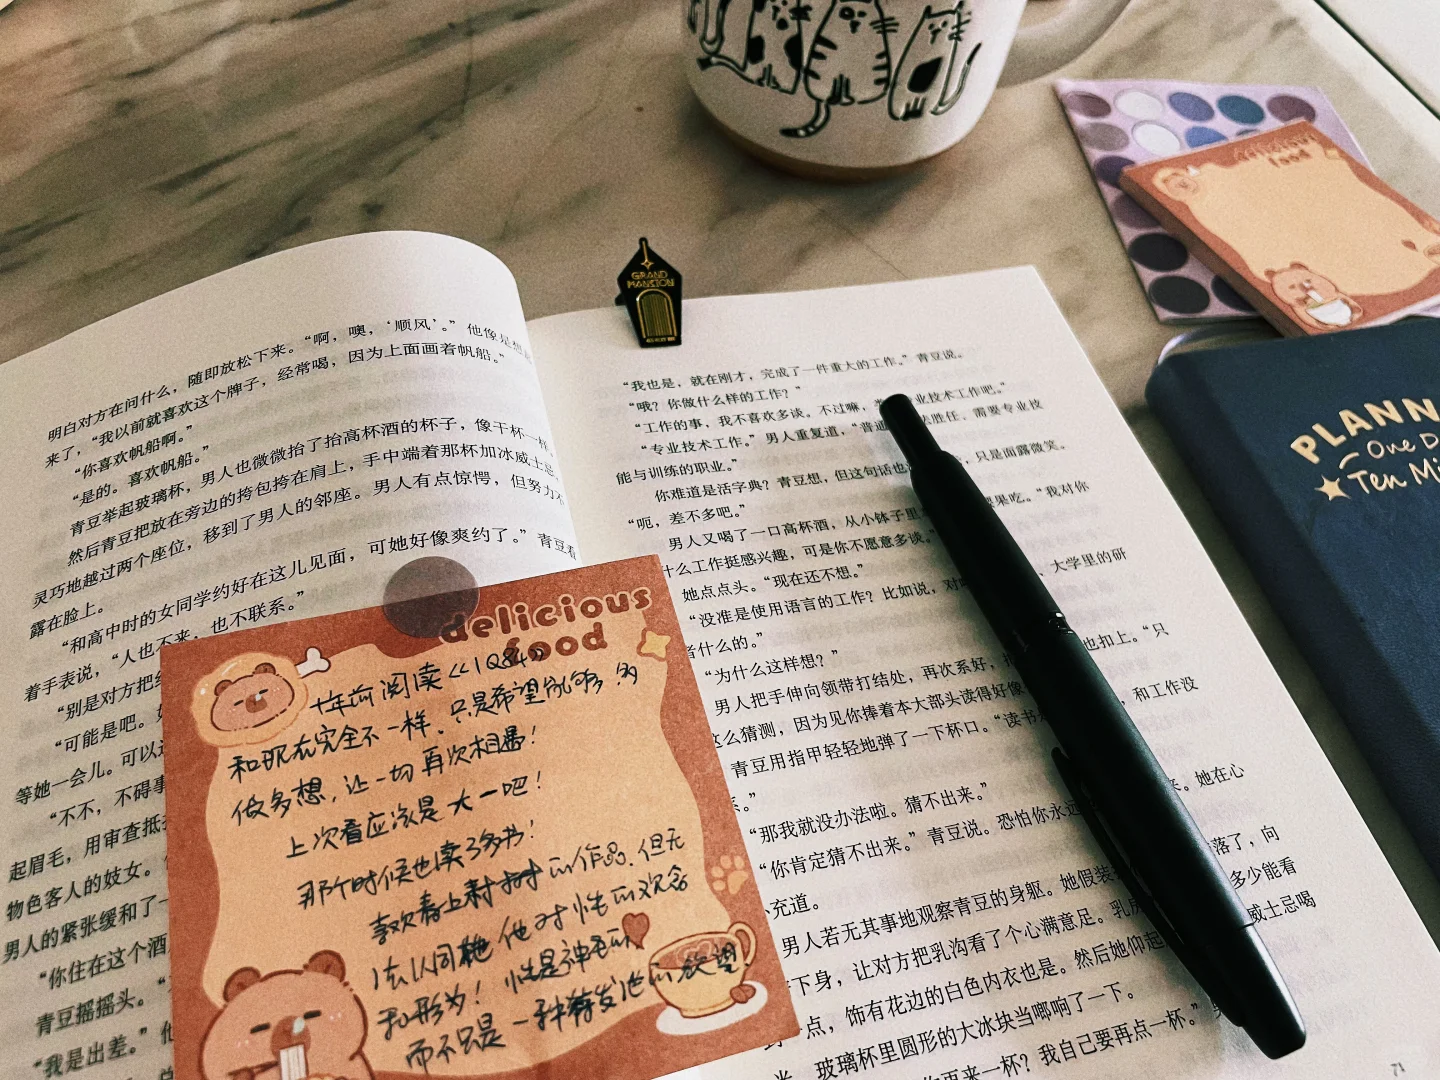 明白对方在问什么，随即放松下来。“啊，噢，‘顺风’。” 他像是想
来了，“我以前就喜欢这个牌子，经常喝，因为上面画着帆船。”
“你喜欢帆船啊。”
“是的。喜欢帆船。”
青豆举起玻璃杯，男人也微微抬了抬高杯酒的杯子，像干杯一样
然后青豆把放在旁边的挎包挎在肩上，手中端着那杯加冰威士忌
灵巧地越过两个座位，移到了男人的邻座。男人有点惊愕，但努力不
露在脸上。
“和高中时的女同学约好在这儿见面，可她好像爽约了。” 青豆看
着手表说，“人也不来，也不联系。”
“别是对方把
“可能是吧。
等她一会儿。可以
“不不，不碍事
起眉毛，用审查抵
物色客人的妓女。
男人的紧张缓和了一
“你住在这个酒
青豆摇摇头。
“我是出差。”
“我也是，就在刚才，完成了一件重大的工作。” 青豆说。
“哦？你做什么样的工作？”
“工作的事，我不喜欢多谈。不过嘛， 业技术工作吧。”
“专业技术工作。” 男人重复道，“普通 法胜任、需要专业技
能与训练的职业。”
你难道是活字典？青豆想，但这句话也 ，只是面露微笑。
“呃，差不多吧。”
男人又喝了一口高杯酒，从小钵子里 果吃。“我对你
什么工作挺感兴趣，可是你不愿意多谈。”
她点点头。“现在还不想。”
“没准是使用语言的工作？比如说，对 、大学里的研
者什么的。”
“为什么这样想？”
男人把手伸向领带打结处，再次系好， 也扣上。“只
这么猜测，因为见你捧着本大部头读得好像 ，和工作没
青豆用指甲轻轻地弹了一下杯口。“读书
系。”
“那我就没办法啦。猜不出来。”
“你肯定猜不出来。” 青豆说。恐怕你永远 来。她在心
补充道。
男人若无其事地观察青豆的身躯。她假装 落了，向
下身，让对方把乳沟看了个心满意足。乳房 多少能看
一点，饰有花边的白色内衣也是。然后她仰起 威士忌喝
玻璃杯里圆形的大冰块当啷响了一下。
再来一杯？我自己要再点一杯。”
71
delicious
food
十年前阅读《1Q84》
和现在完全不一样，只是希望能够多
做多想，让一切再次相遇！
上次看应该是大一吧！
那个时候也读了多书！
喜欢春上村树的作品，但无
法认同他对性的观念
和形为！性是神圣的
而不只是一种需发泄的欲望
GRAND
MANSION
delicious
food
PLANN
One D
Ten Mi